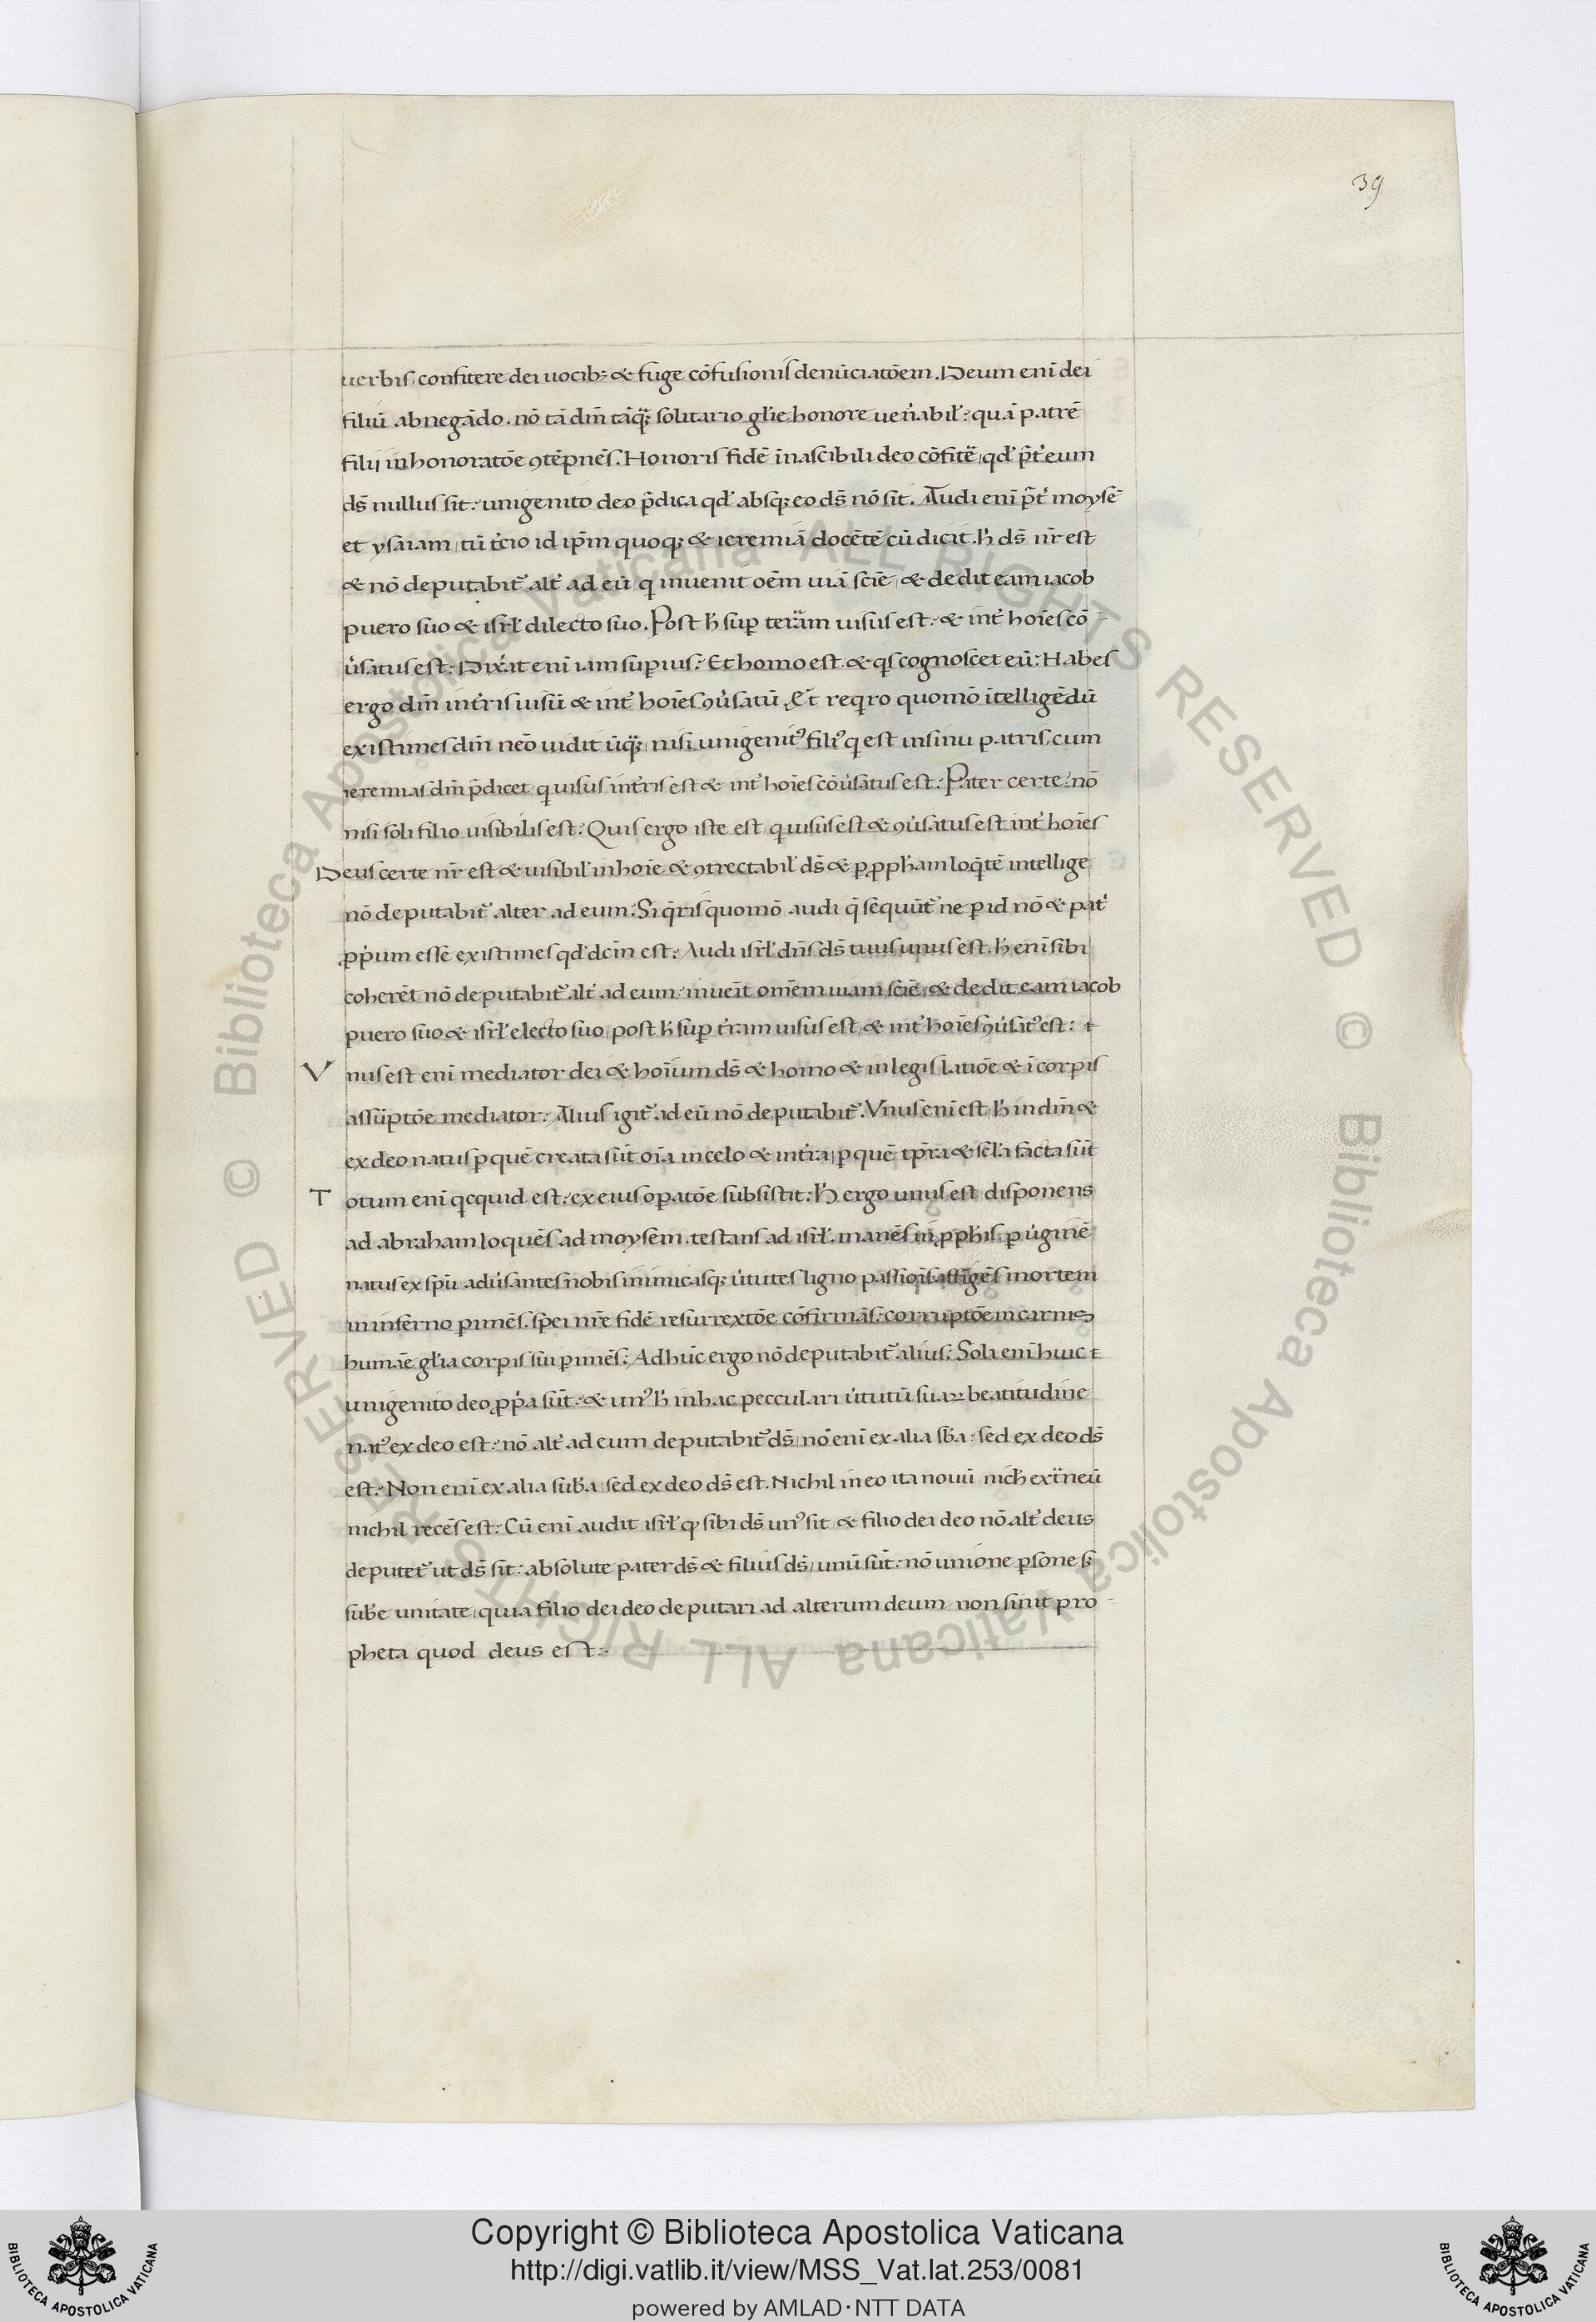 39
uerbis, confitere dei uocib; & fuge cōfusionis denūciatōem. Deum enī dei
filiū abnegādo. nō tā dm̄ tāq; solitario gl'ie honore uen'abil': quā patrē
filij inhonoratōe ꝯtēpnēs. Honoris fidē īnascibili deo cōfitē qd' p̄t' eum
ds̄ nullus sit: unigenito deo p̄dica qd' absq; eo ds̄ nō sit. Audi enī p̄t' moysē
et ysaiam, tū t'cio id ip̄m quoq; & ieremiā docētē cū dicit. h' ds̄ nr̄ est
& nō deputabit' alt' ad eū, q inuenit oēm uiā sciē, & dedit eam iacob
puero suo & isrl' dilecto suo. Post h' suꝑ terā̈m uisus est: & int' hoīes cō
u'satus est: Dix'at enī iam suꝑius: Et homo est. & qs cognoscet eū: Habes
ergo dm̄ int'ris uisū & int' hoīes ꝯu'satū. Et reqro quomō ītelligēdū
existimes dm̄ neō uidit ūq; nisi unigenit' fili' q est in sinu patris, cum
ieremias dm̄ p̄dicet, q uisus int'ris est & int' hoīes cōu'satus est: Pater certe: nō
nisi soli filio uisibilis est: Quis ergo iste est, q uisus est & ꝯu'satus est int' hoīes
Deus certe nr̄ est & uisibil' in hoīe & ꝯtrectabil' ds̄ & ꝑ ꝓph'am loq̄tē intellige
nō deputabit' alter ad eum: Si q̄ris quomō audi q̄ sequūt' ne ꝑ id nō & pat'
ꝓp'ium esse existimes qd' dc̄m est: Audi isrl' dn̄s ds̄ tuus unus est. h' enī sibi
coherēt nō deputabit' alt' ad eum: inueīt omēm uiam sciē, & dedit eam iacob
puero suo & isrl' electo suo, post h' suꝑ t'ram uisus est, & int' hoīes ꝯu'sat' est:
Vnus est enī mediator dei & hoīum ds̄ & homo & in legislatiōe & ī corꝑis
assūptōe mediator: Alius igit' ad eū nō deputabit'. Vnus enī est h' in dm̄ &
ex deo natus ꝑ quē creata sūt oīa in celo & int'ra, ꝑ quē tp̄ra & scl'a facta sūt
Totum enī qcquid est: ex eius oꝑatōe subsistit: h' ergo unus est disponens
ad abraham loquēs ad moysem. testans ad isrl'. manēs in ꝓph'is, ꝑ u'ginē
natus ex sp̄u adu'santes nobis inimicasq; u'tutes ligno passiois affigēs mortem
in inferno ꝑimēs. spei nr̄e fidē resurrextōe cōfirmās: corruptōem carnis
humāe gl'ia corꝑis sui ꝑimēs: Ad hūc ergo nō deputabit' alius: Sola enī huic
unigenito deo ꝓp'a sūt: & un' h' in hac pecculari u'tutū suaꝝ beatitudine
nat' ex deo est: nō alt' ad eum deputabit' ds̄, nō enī ex alia sb̄a: sed ex deo ds̄
est: Non enī ex alia sub'a, sed ex deo ds̄ est. Nichil in eo ita nouū nich' ext̄neū
nichil recēs est: Cū enī audit isrl' qꝫ sibi ds̄ un' sit & filio dei deo nō alt' deus
deputet' ut ds̄ sit: absolute pater ds̄ & filius ds̄, unū sūt: nō unione ꝑsone sꝫ
sub'e unitate, quia filio dei deo deputari ad alterum deum non sinit pro
pheta quod deus est:
Copyright © Biblioteca Apostolica Vaticana
http://digi.vatlib.it/view/MSS_Vat.lat.253/0081
powered by AMLAD · NTT DATA